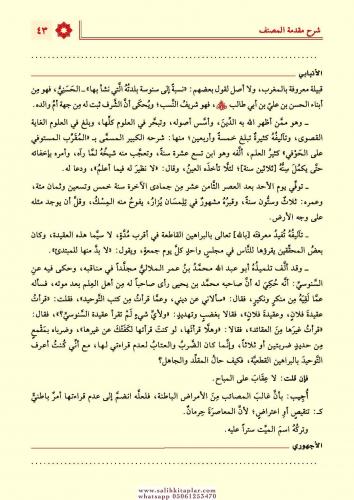 شرح مقدمة المصنف
٤٣
الأنبابي
قبيلة معروفة بالمغرب، ولا أصل لقول بعضهم: «نسبةً إلى سنوسة بلدتُه الَّتي نشأ بها» ـ الحَسَنيُّ، فهو من
أبناء الحسن بن عليّ بن أبي طالب ، فهو شريفُ النَّسب؛ ويُحكَى أنَّ الشَّرف ثبت له من جِهة أمِّ والده.
ـ وهو ممَّن أظهر الله به الدِّينَ، وأسَّس أصوله، وتبحَّر في العلوم كلِّها، وبلغ في العلوم الغاية
القصوى، وتآليفُه كثيرةٌ تبلغ خمسةً وأربعين؛ منها: شرحه الكبير المسمَّى بـ «المُقرِّب المستوفي
على الحَوْفي» كثيرُ العلم، ألَّفه وهو ابن تسع عشرة سنةً، وتعجَّب منه شيخُهُ لمَّا رآه، وأمره بإخفائه
حتَّى يكملَ سِنُّهُ [ثلاثين سنة]؛ لئلَّا تأخذَه العينُ، وقال: «لا نظيرَ له فيما أعلم»، ودعا له.
ـ توفِّي يوم الأحد بعد العصر الثَّامن عشر من جمادى الآخرة سنة خمس وتسعين وثمان مئة،
وعمره: ثلاثٌ وستُّون سنةً، وقبرُه مشهورٌ في تِلِمسان يُزارُ، يفوحُ منه المِسْكُ، وقلَّ أن يوجد مثله
على وجه الأرض.
ـ تآليفُه تُفيدُ معرفتَه [بالله] تعالى بالبراهين القاطعة في أقرب مُدَّةٍ، لا سيَّما هذه العقيدة، وكان
بعضُ المحقِّقين يقرؤها للنَّاس في مجلسٍ واحدٍ كلَّ يوم جمعةٍ، ويقول: «لا بدَّ منها للمبتدئ».
ـ وقد ألَّف تلميذُهُ أبو عبد الله محمَّدُ بنُ عمر الملاليُّ مجلَّداً في مناقبه، وحكى فيه عن
السَّنوسيِّ: أنَّه حُكِيَ له أنَّ صاحبه محمَّد بن يحيى رأى صاحباً له مِن أهل العِلم بعد موته، فسأله
عمَّا لَقِيَهُ مِن منكرٍ ونكيرٍ، فقال: «سألاني عن ديني، وعمَّا قرأتُ مِن كتب التَّوحيد»، فقلت: «قرأتُ
عقيدةَ فلانٍ، وعقيدةَ فلانٍ»، فقالا بغضبٍ وتهديدٍ: «ولأيِّ شيءٍ لَمْ تقرأ عقيدةَ السَّنوسيِّ؟»، فقال:
«قرأتُ غيرَها مِنَ العقائد»، فقالا: «وهلَّا قرأتَها، لو كنتَ قرأتَها لكَفَتْكَ عن غيرها»، وضرباه بمِقْمعٍ
مِن حديدٍ ضربتين أو ثلاثاً، وإنَّما كان الضَّربُ والعتابُ لعدم قراءتي لها، مع أنِّي كُنتُ أعرف
التَّوحيدَ بالبراهين القطعيَّة، فكيف حالُ المقلِّد والجاهل؟
فإن قلت: لا عِقابَ على المباح.
أُجيب: بأنَّ غالبَ المصائب مِنَ الأمراض الباطنة، فلعلَّه انضمَّ إلى عدم قراءتها أمرٌ باطنيٌّ
كـ: تنقيصٍ أو اعتراضٍ؛ لأنَّ المعاصَرةَ حِرمانٌ.
وتركُه اسمَ الميِّت ستراً عليه.
الأجهوري
www.salihkitaplar.com
whatsapp 05061255470